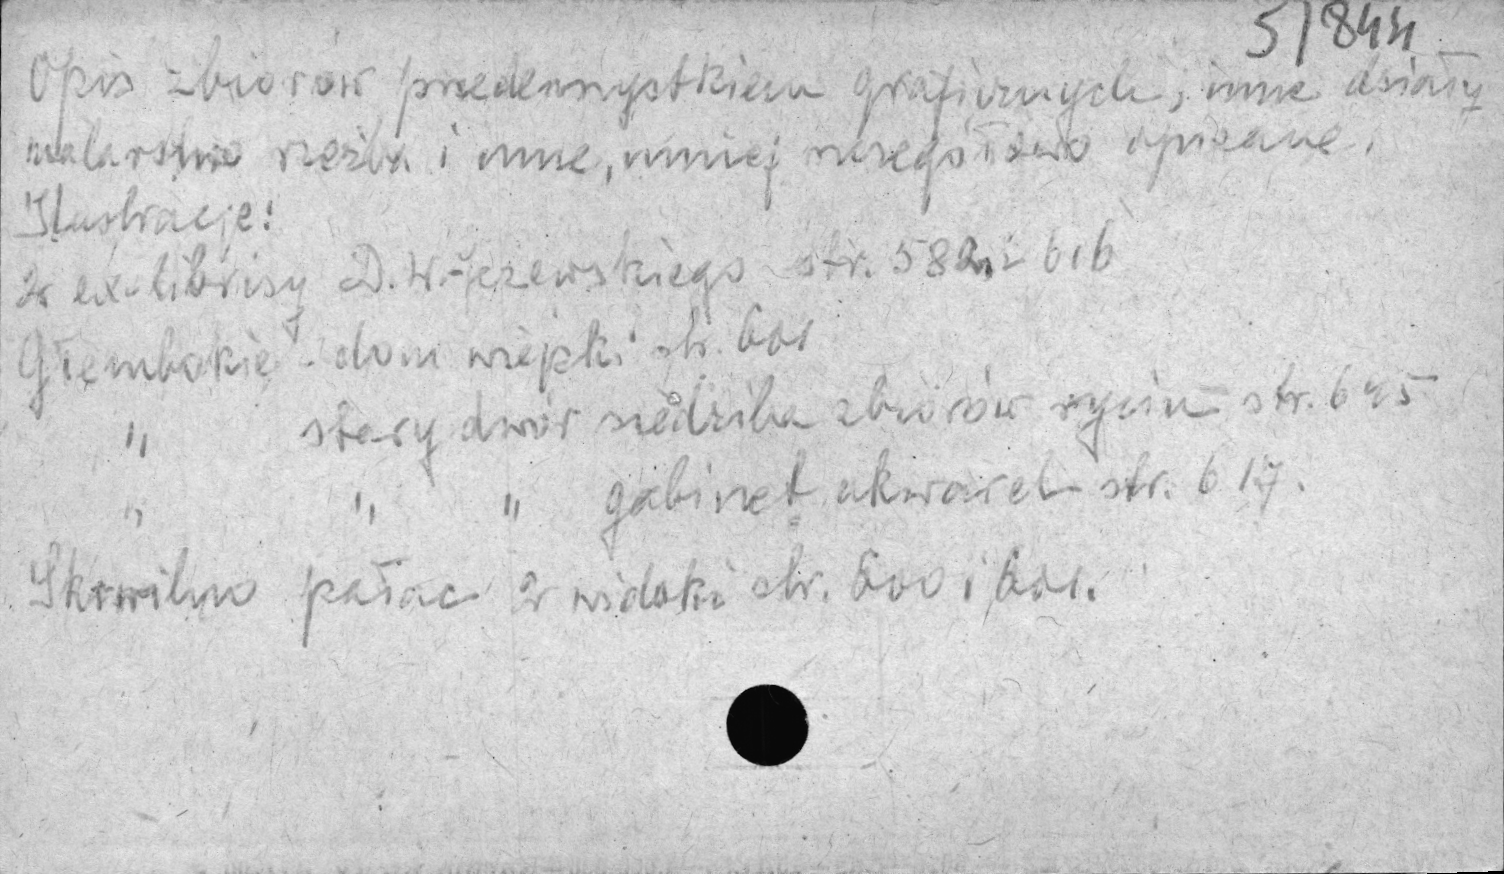 5/844
Opis zbiorów przedewszystkiem graficznych, inne działy
malarstwo rzeźba i inne, mniej szczegółowo opisane.
Ilustracje:
2 ex-librisy D. W-czewskiego str. 582 i 616
Głembokie - dom wiejski str. 601
" stary dwór siedziba zbiorów rycin - str. 615
" " " gabinet akwarel str. 617.
Skrwilno pałac 2 widoki str. 600 i 601.